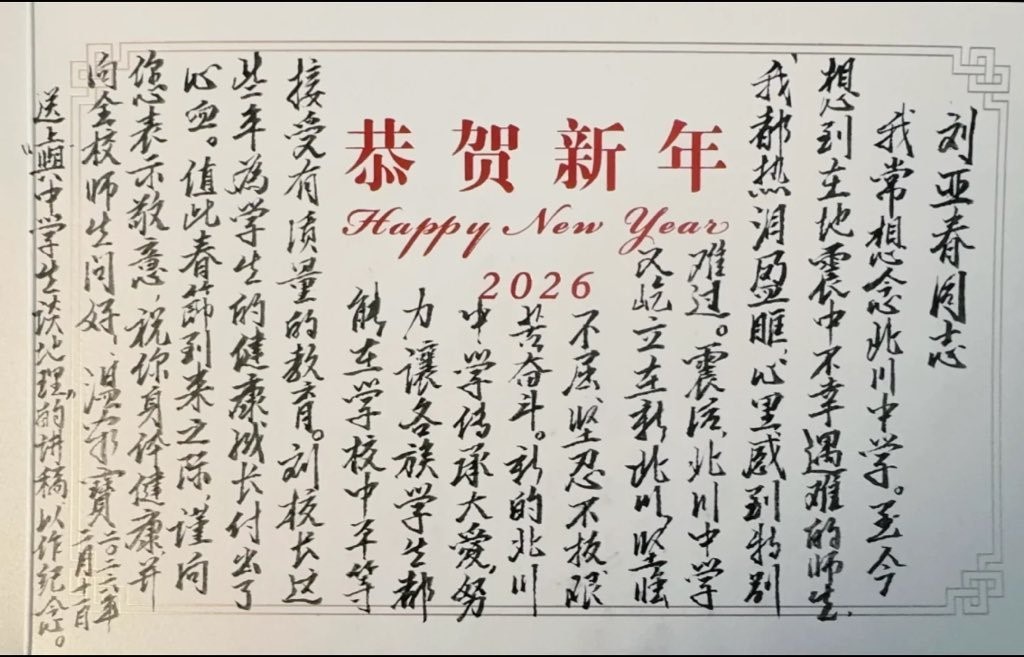 刘亚春同志
我常想念北川中学。至今
想到在地震中不幸遇难的师生,
我都热泪盈眶,心里感到特别
难过。震后,北川中学
又屹立在新北川,坚强
不屈,坚忍不拔,艰
苦奋斗。新的北川
中学传承大爱,努
力讓各族学生都
能在学校中平等
接受有质量的教育。刘校长这
些年為学生的健康成长付出了
心血。值此春節到来之际,谨向
您表示敬意,祝你身体健康并
向全校师生问好。温家寶
二〇二六年
二月十一日
送上“與中学生谈地理”的讲稿以作纪念。
恭贺新年
Happy New Year
2026